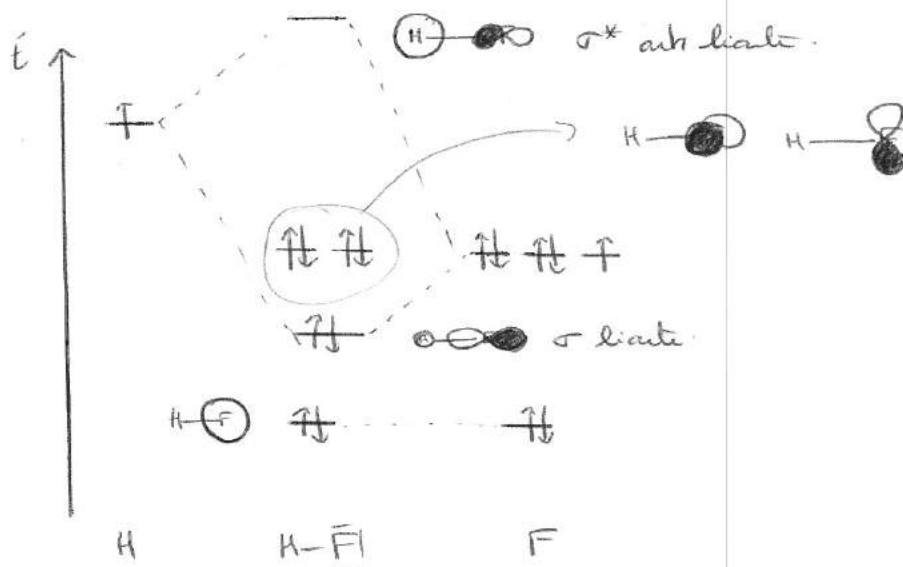 E
H σ* anti liante.
H H
σ liante.
H-F
H H-F̄| F